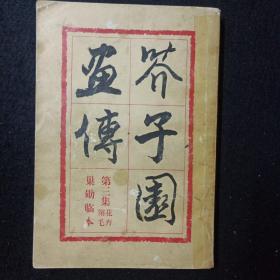 芥子園
畫傳
第三集 花卉翎毛
巢勛臨本